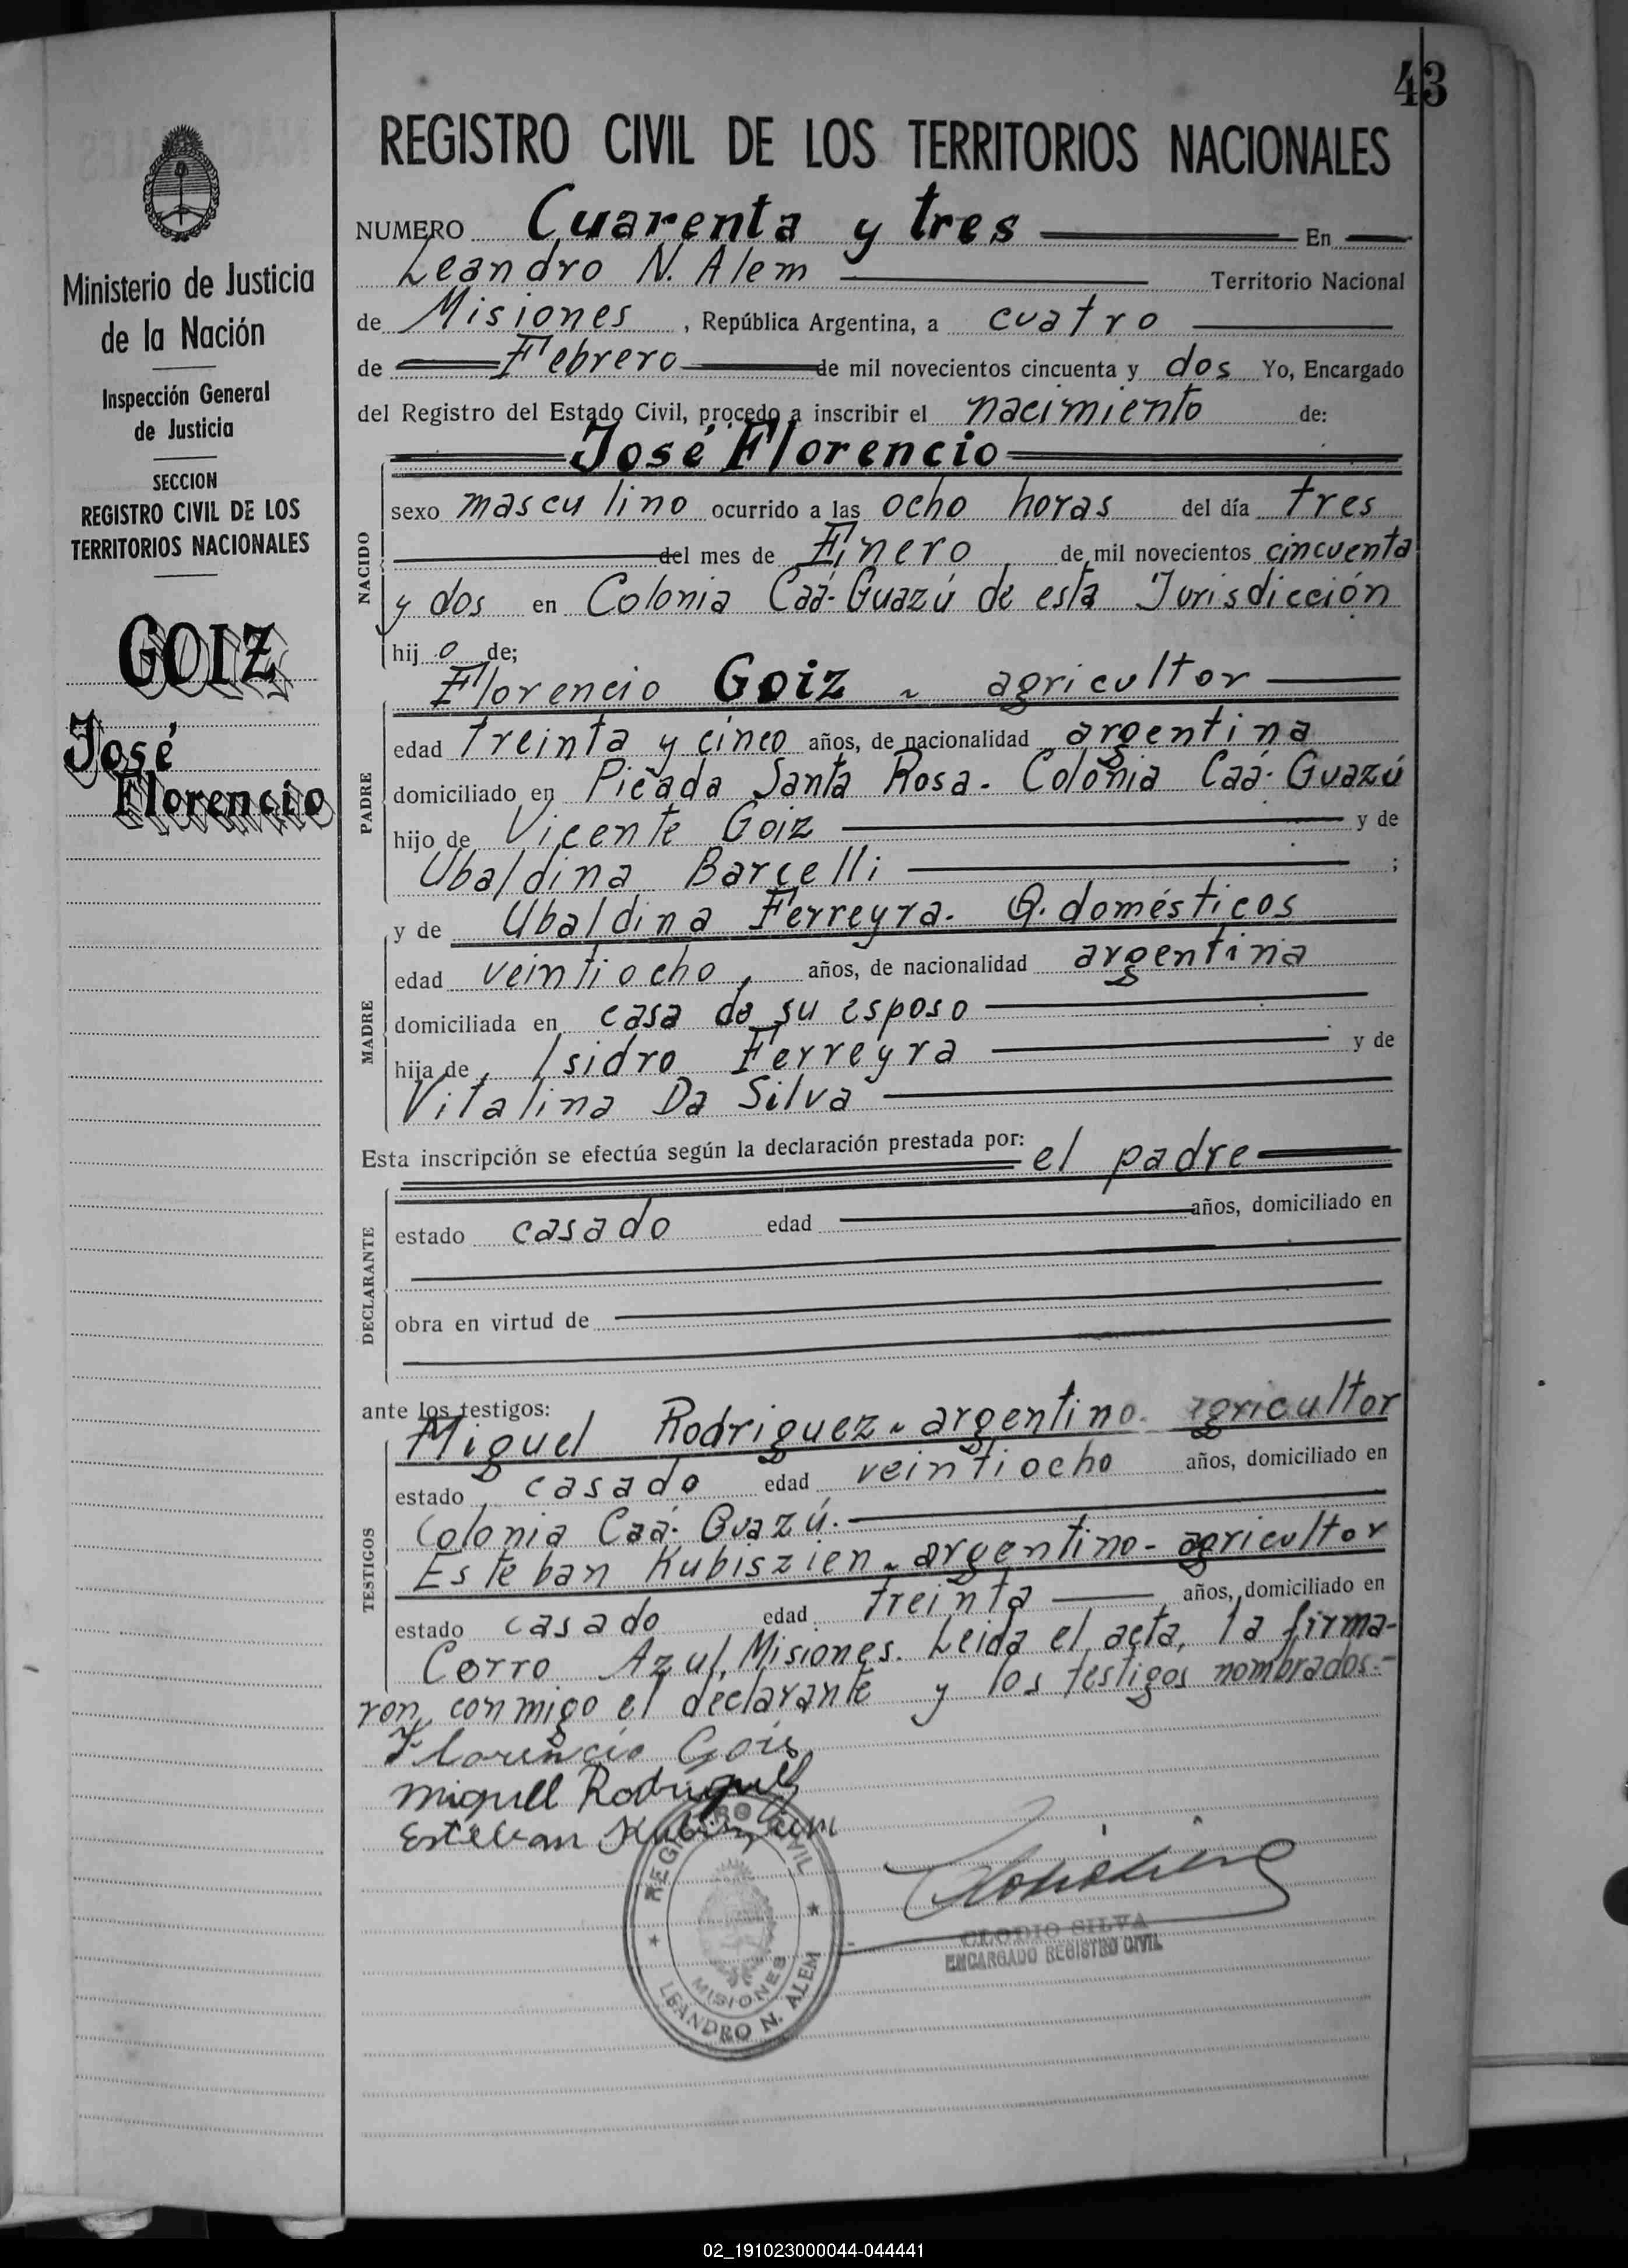 43
Ministerio de Justicia
de la Nación
Inspección General
de Justicia
SECCION
REGISTRO CIVIL DE LOS
TERRITORIOS NACIONALES
GOIZ
José
Florencio
REGISTRO CIVIL DE LOS TERRITORIOS NACIONALES
NUMERO Cuarenta y tres En
Leandro N. Alem Territorio Nacional
de Misiones, República Argentina, a cuatro
de Febrero de mil novecientos cincuenta y dos Yo, Encargado
del Registro del Estado Civil, procedo a inscribir el nacimiento de:
José Florencio
NACIDO
sexo masculino ocurrido a las ocho horas del día tres
del mes de Enero de mil novecientos cincuenta
y dos en Colonia Caá-Guazú de esta Jurisdicción
hijo de;
Florencio Goiz - agricultor
PADRE
edad treinta y cinco años, de nacionalidad argentina
domiciliado en Picada Santa Rosa- Colonia Caá-Guazú
hijo de Vicente Goiz y de
Ubaldina Barcelli ;
y de Ubaldina Ferreyra- Q. domésticos
MADRE
edad veintiocho, años, de nacionalidad argentina
domiciliada en casa de su esposo
hija de Isidro Ferreyra y de
Vitalina Da Silva
Esta inscripción se efectúa según la declaración prestada por: el padre
DECLARANTE
estado casado edad años, domiciliado en
obra en virtud de
ante los testigos:
Miguel Rodriguez- argentino- agricultor
TESTIGOS
estado casado edad veintiocho años, domiciliado en
Colonia Caá-Guazú.
Esteban Kubiszien- argentino- agricultor
estado casado edad treinta años, domiciliado en
Cerro Azul, Misiones. Leida el acta, la firma-
ron conmigo el declarante y los testigos nombrados.-
Florencio Gois
Miguel Rodriguez
Esteban
REGISTRO CIVIL
MISIONES
LEANDRO N. ALEM
CLODIO SILVA
ENCARGADO REGISTRO CIVIL
02_191023000044-044441